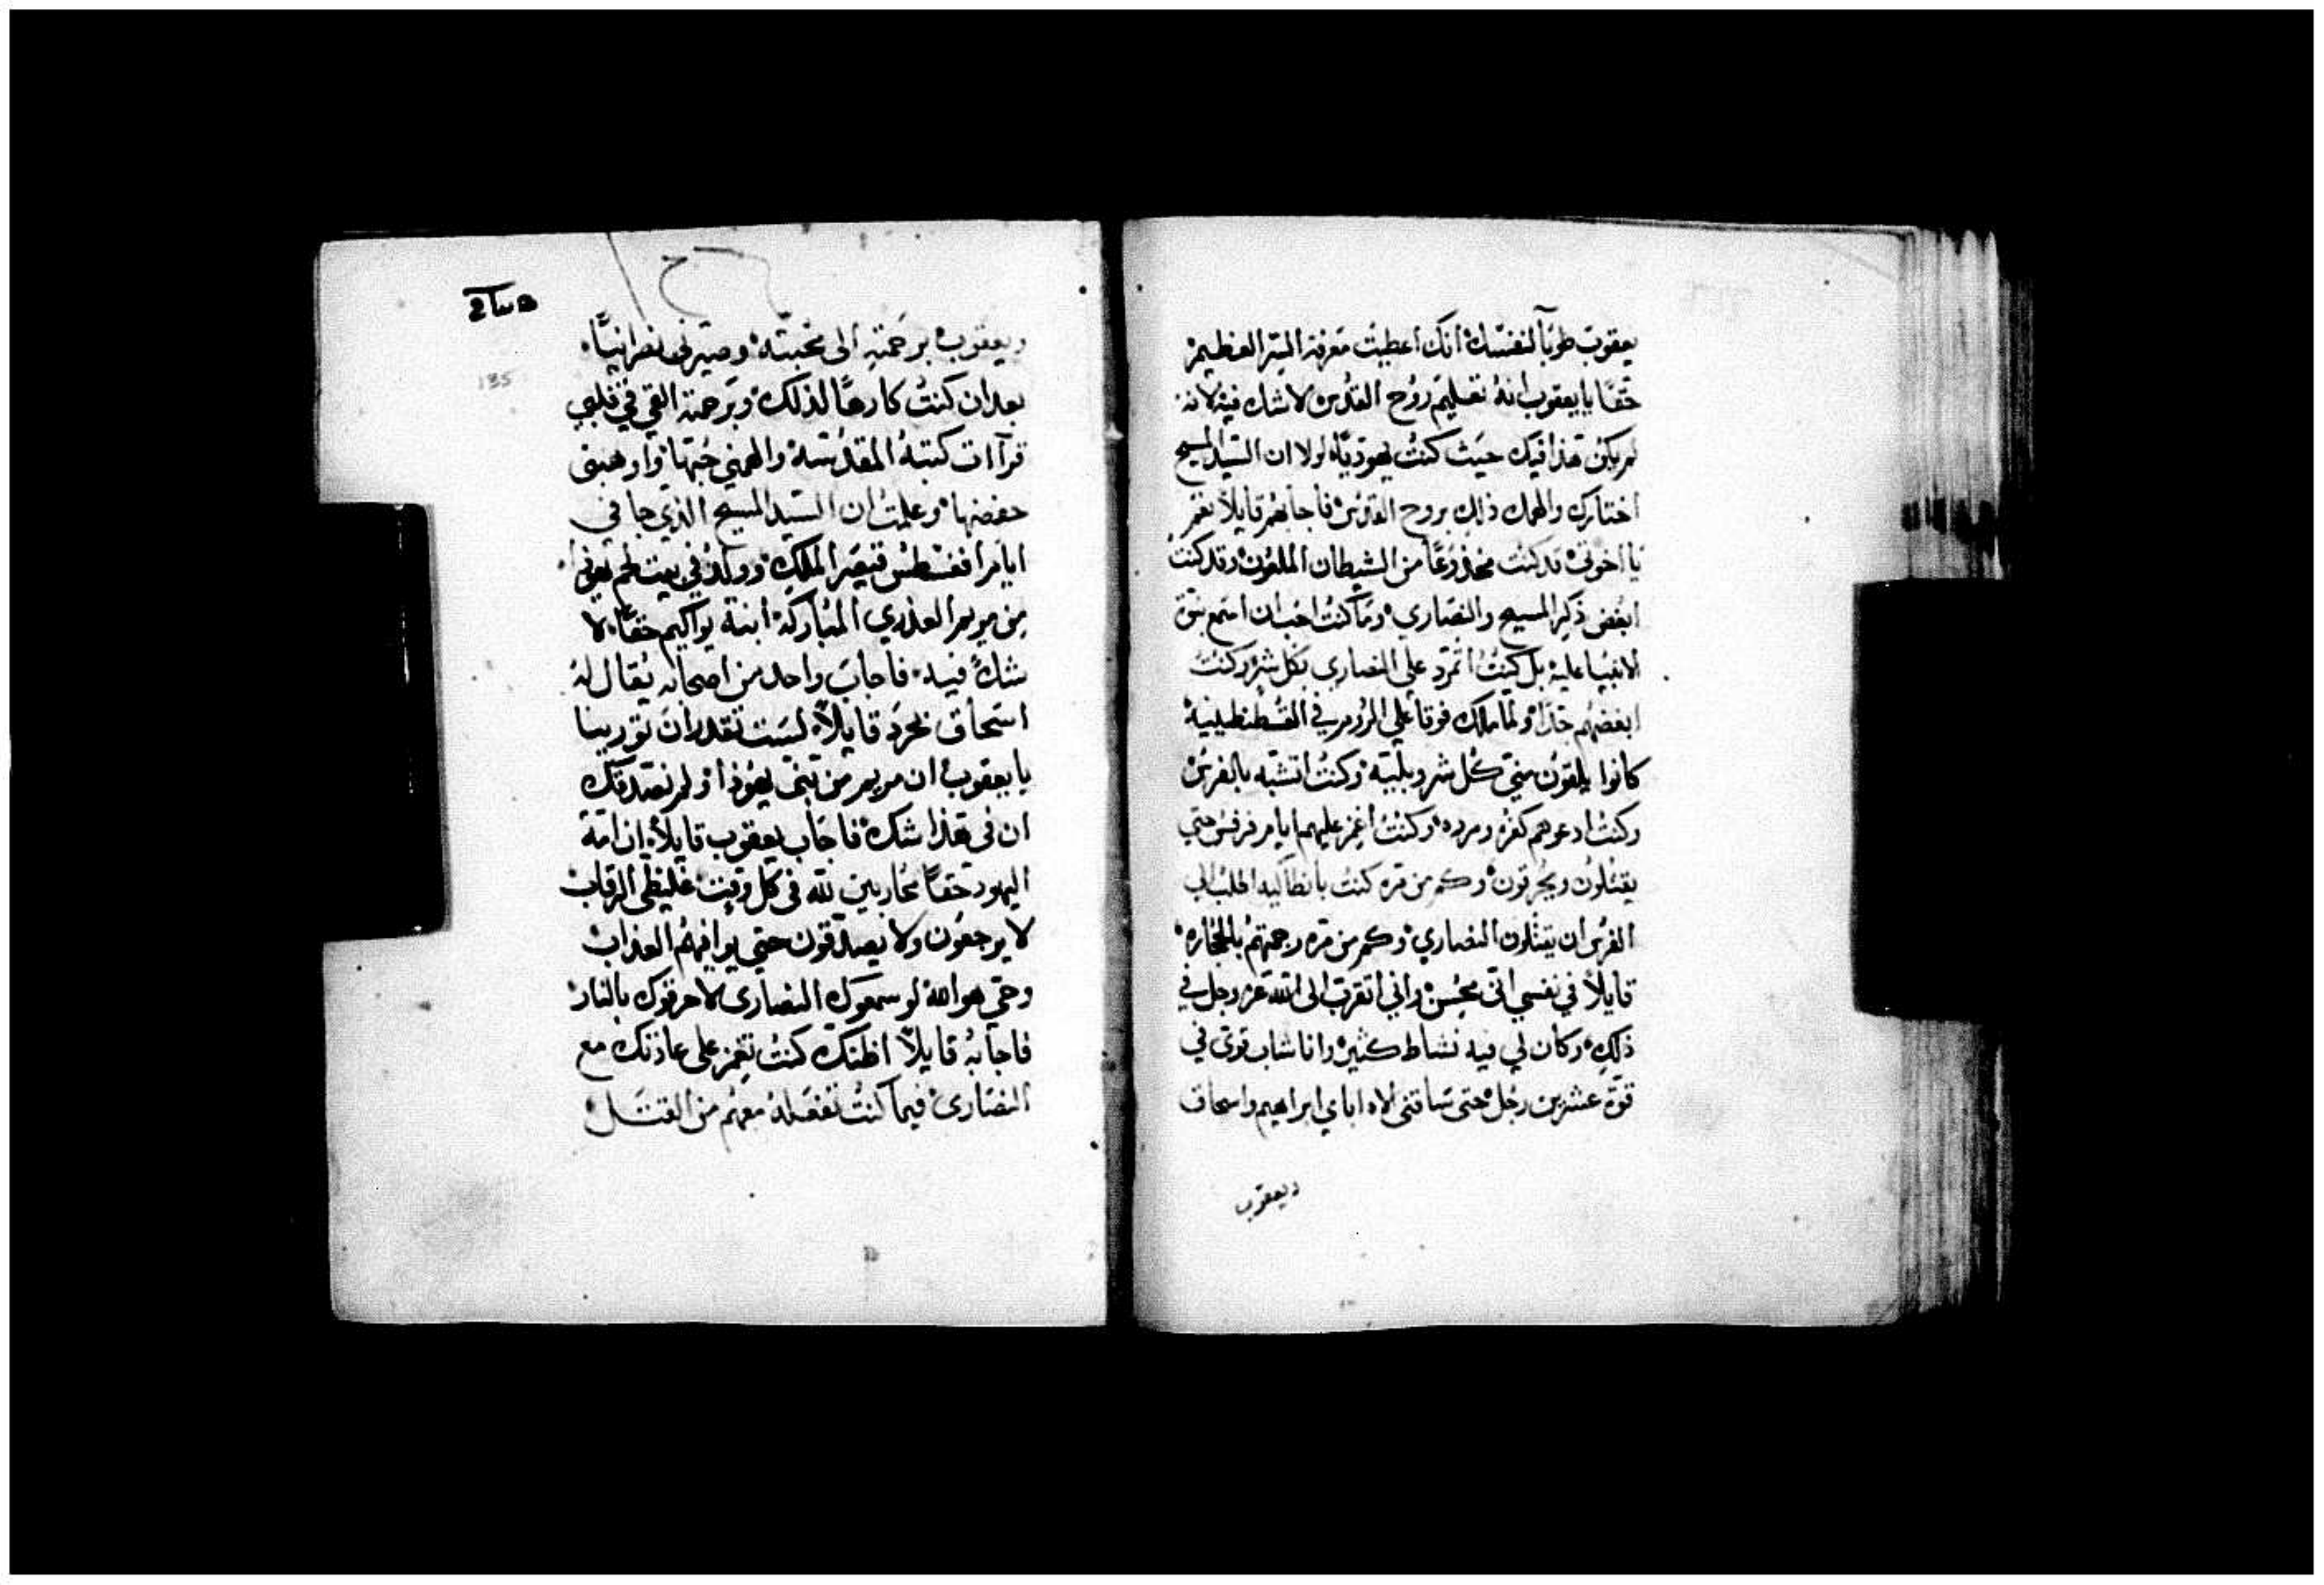 يعقوب طوبآ لنفسك انك اعطيت معرفة السر العظيم
حقا يا يعقوب انه تعليم روح القدس لا شك فيه لانه
لم يكن هذا فيك حيث كنت يهوديا لولا ان السيد المسيح
اختارك والهمك ذلك بروح القدس فاجابهم قايلا نعم
يا اخوتي قد كنت مخدوعا من الشيطان الملعون وقد كنت
ابغض ذكر المسيح والنصاري وما كنت احب ان اسمع بنوة
الانبيا عليه بل كنت اتمرد علي النصاري بكل شر وكنت
ابغضهم جدا ولما ملك فوقا علي الروم في القسطنطينية
كانوا يلقون مني كل شر وبلية وكنت اتشبه بالفرس
وكنت ادعوهم كفره ومرده وكنت اغمز عليهم ايام فرفس حتي
يقتلون ويحرقون وكم من مره كنت بانطاكيه اطلب الي
الفرس ان يقتلون النصاري وكم من مره رجمتهم بالحجاره
قايلا في نفسي اني محسن واني اتقرب الى الله عز وجل في
ذلك وكان لي فيه نشاط كثير وانا شاب قوي في
قوة عشرين رجل حتى ساقني الاه اباي ابراهيم واسحاق
ويعقوب
ويعقوب برحمته الى محبته وصيرني نصرانيا
بعد ان كنت كارها لذلك وبرحمته القي في قلبي
قرآات كتبه المقدسة والهمني حبها واوهبني
حفضها وعلمت ان السيد المسيح الذي جا في
ايام اغفسطس قيصر الملك وولد في بيت لحم
من مريم العذري المباركة ابنة يواكيم حقا لا
شك فيه فاجاب واحد من اصحابه يقال له
اسحاق بحرد قايلا لست تقدر ان تورينا
يا يعقوب ان مريم من بني يهوذا ولم نصدقك
ان في هذا شك فاجاب يعقوب قايلا ان امة
اليهود حقا محاربين لله في كل وقت غليظي الرقاب
لا يرجعون ولا يصدقون حتي يوافيهم العذاب
وحق هو الله لو سمعوك النصارى لاحرقوك بالنار
فاجابه قايلا اظنك كنت تغمز على عادتك مع
النصارى فيما كنت تفعله معهم من القتل
135